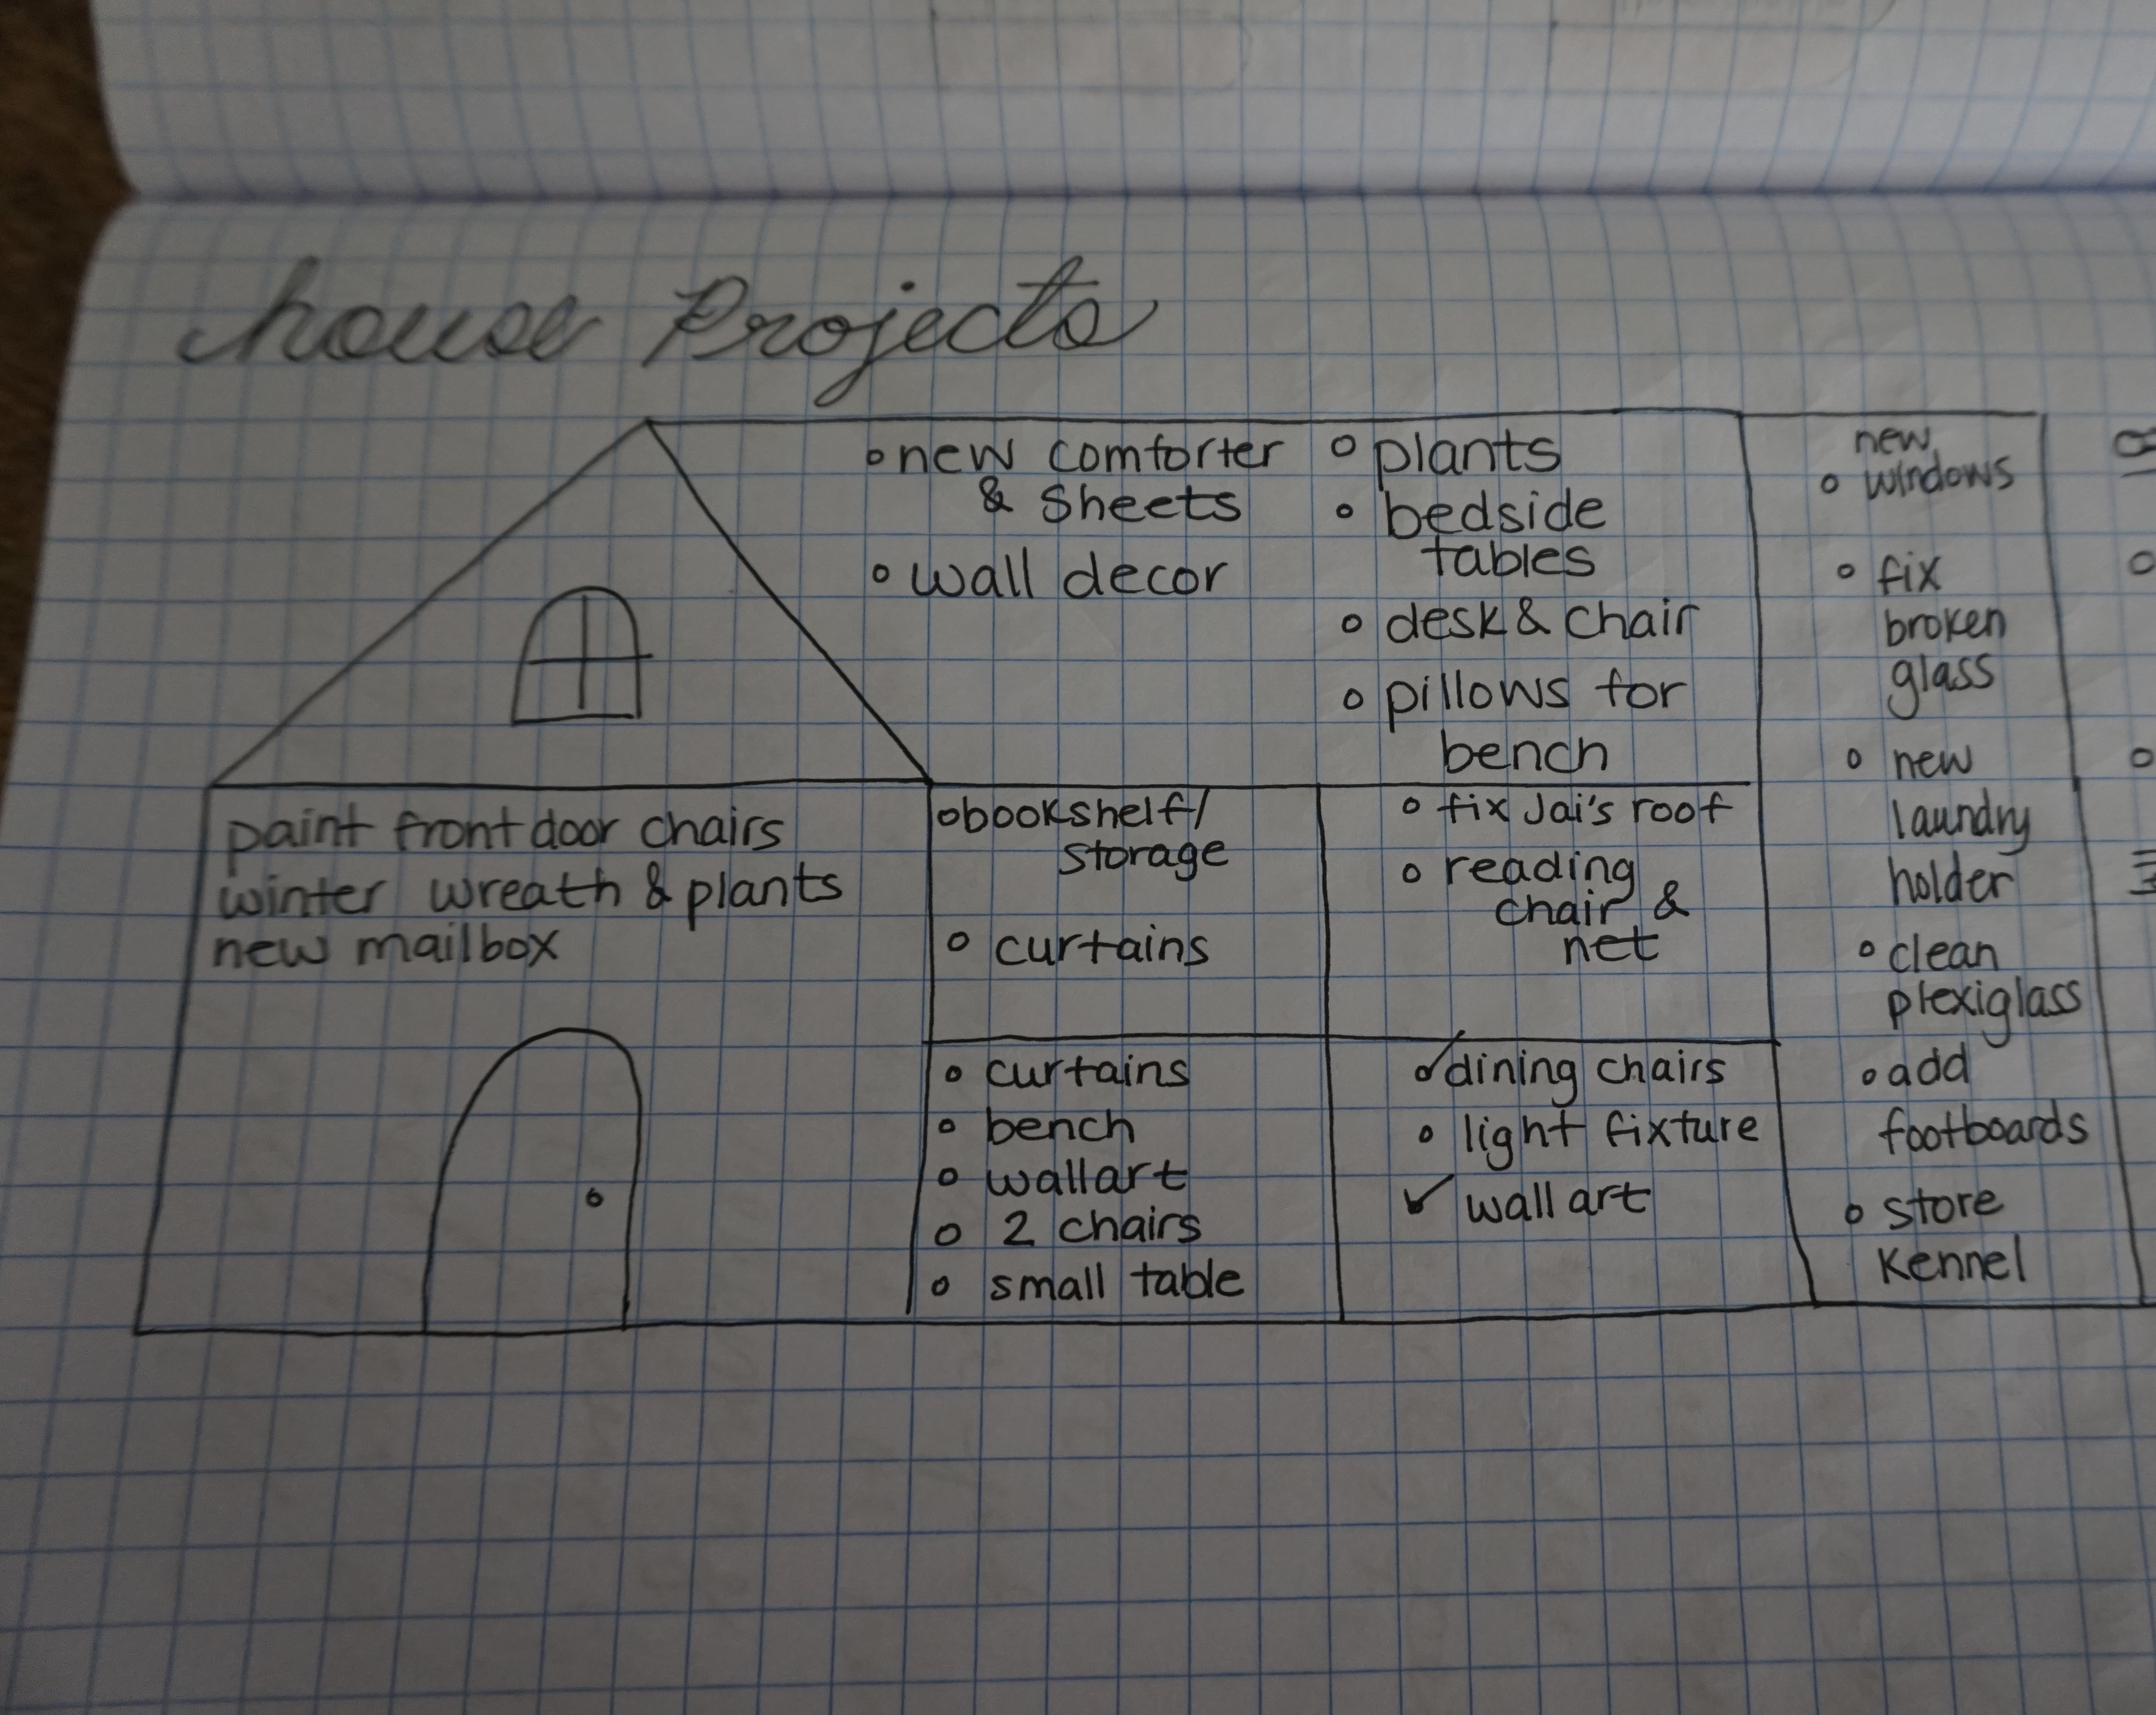 house Projects
new comforter
& Sheets
wall decor
plants
bedside
tables
desk & chair
pillows for
bench
paint front door chairs
winter wreath & plants
new mailbox
bookshelf/
storage
curtains
fix Jai's roof
reading
chair &
net
curtains
bench
wall art
2 chairs
small table
dining chairs
light fixture
wall art
new
windows
fix
broken
glass
new
laundry
holder
clean
plexiglass
add
footboards
store
Kennel